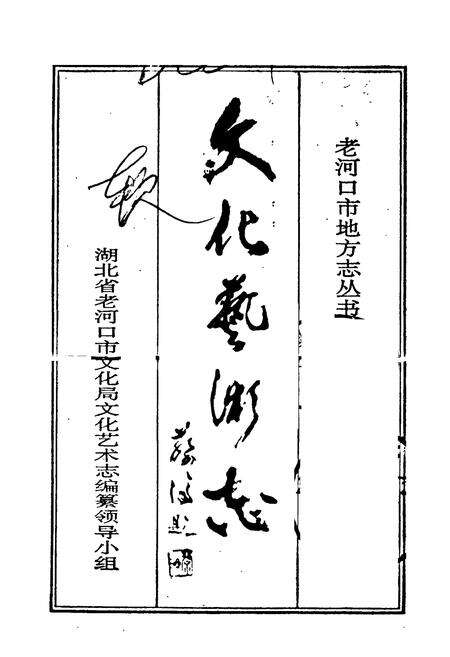 老河口市地方志丛书
文化藝術志
湖北省老河口市文化局文化艺术志编纂领导小组